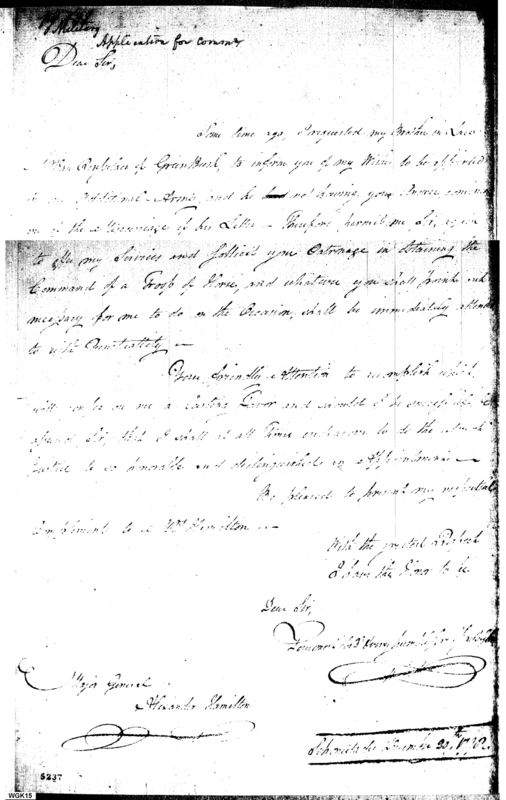 Military
Application for comms
Dear Sir,
Some time ago, I requested my Brother in Law
of Green Bush, to inform you of my Wish to be appointed
in the Additional Army, and he not having your Answer
me of the Miscarriage of his Letter – Therefore permit me Sir, again
to offer my Services and Sollicit your Patronage in obtaining the
Command of a Troop of Horse, and whatever you shall think
necessary for me to do on the Occasion, shall be immediately attended
to with Punctuality —
Your friendly Attention to accomplish which
will confer on me a lasting Favor and should I be successful
Sir, that I shall at all Times endeavour to do the
Justice to so honorable and distinguished an Appointment —
Be pleased to present my respectful
Compliment to Mrs Hamilton —
With the greatest Respect
I have the Honor to be
Dear Sir,
Your very humble Serv
Major General
Alexander Hamilton
5237
WGK15